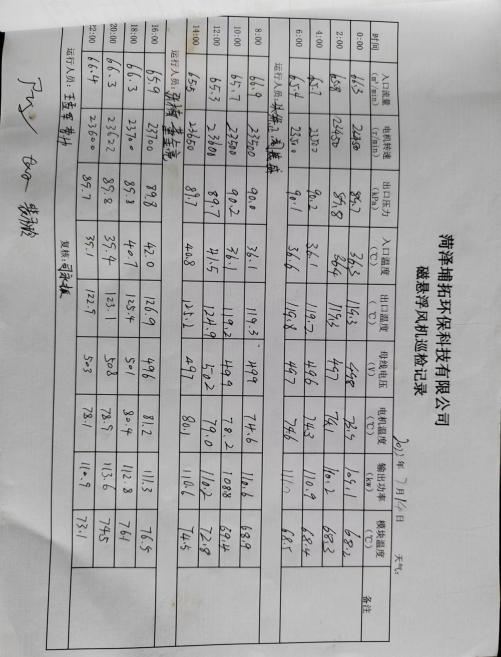 菏泽埔拓环保科技有限公司
磁悬浮风机巡检记录
年 7月14日 天气:
时间 入口流量(m³/min) 电机转速(r/min) 出口压力(kPa) 入口温度(℃) 出口温度(℃) 母线电压(V) 电机温度(℃) 输出功率(kw) 模块温度(℃) 备注
0:00 66.3 23450 89.7 36.3 119.3 498 73.9 109.1 68.2
2:00 65.8 23450 89.8 36.4 119.3 497 74.1 110.2 68.3
4:00 65.7 23500 90.2 36.1 119.7 496 74.3 110.9 68.4
6:00 65.4 23500 90.1 36.6 119.8 497 74.6 68.5
运行人员:
8:00 66.9 23500 90.0 36.1 119.3 499 74.6 110.6 68.9
10:00 65.7 23500 90.2 36.1 119.2 499 78.2 108.8 69.4
12:00 65.3 23600 89.7 41.5 124.9 502 79.0 110.2 72.8
14:00 65.5 23650 89.7 40.8 125.2 497 80.1 110.6 74.5
运行人员:
16:00 65.9 23700 89.8 42.0 126.9 496 81.2 111.3 76.5
18:00 66.3 23700 89.8 40.7 125.4 501 80.4 112.8 76.1
20:00 66.3 23622 89.8 39.4 123.1 508 78.9 113.6 74.5
22:00 66.4 23600 89.7 39.1 122.9 503 78.1 110.9 73.1
运行人员: 复核: